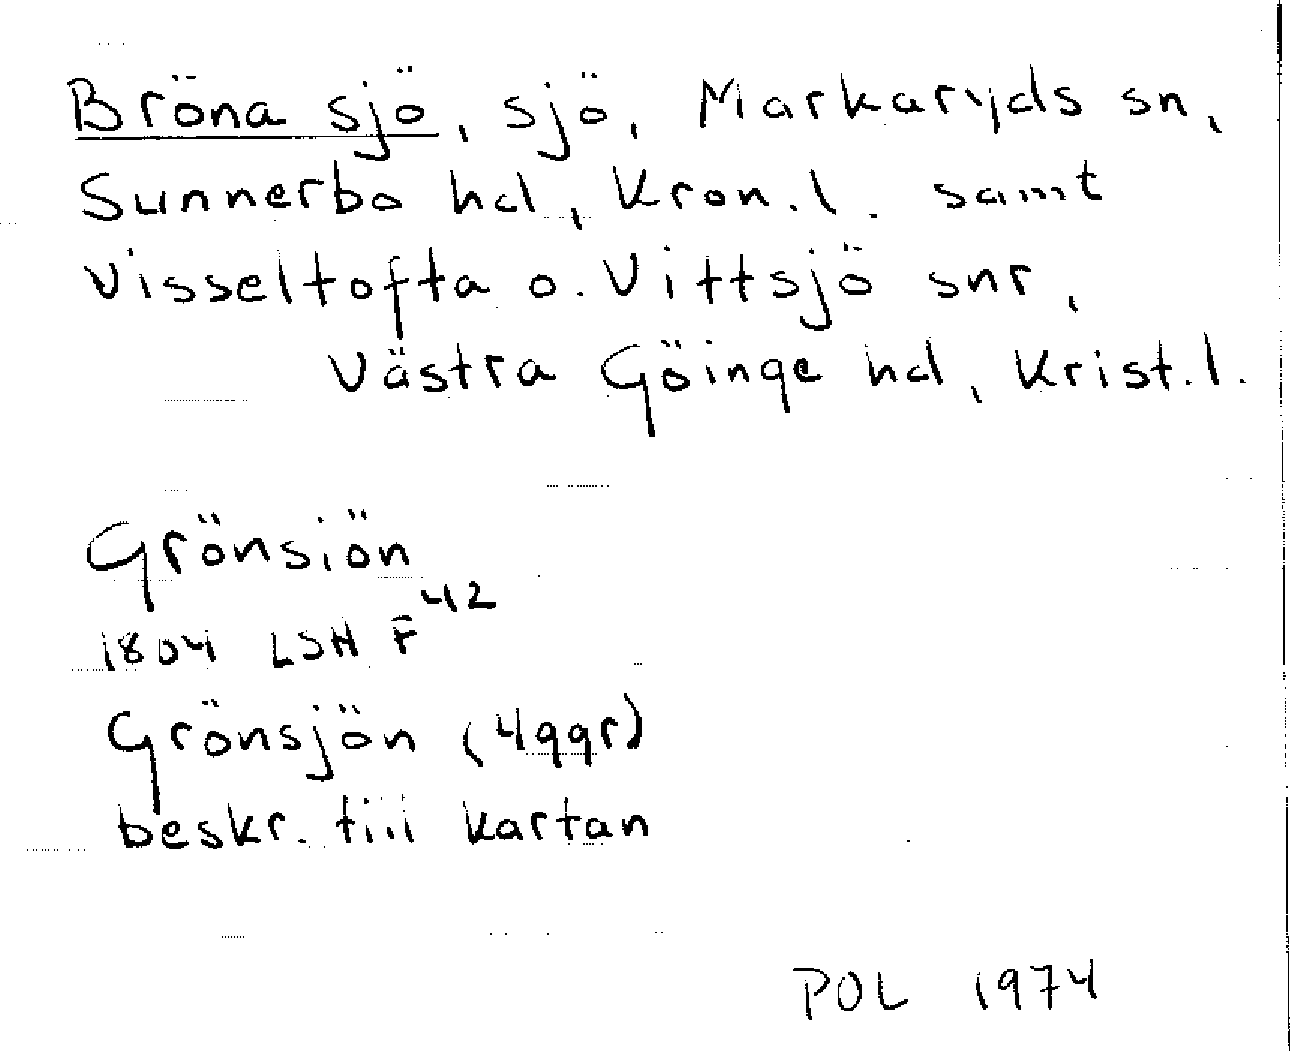 Bröna sjö, sjö, Markaryds sn,
Sunnerbo hd, Kron.l. samt
Visseltofta o. Vittsjö snr,
Västra Göinge hd, Krist.l.
Grönsiön
1804 LSH F42
Grönsjön (4ggr)
beskr. till kartan
POL 1974